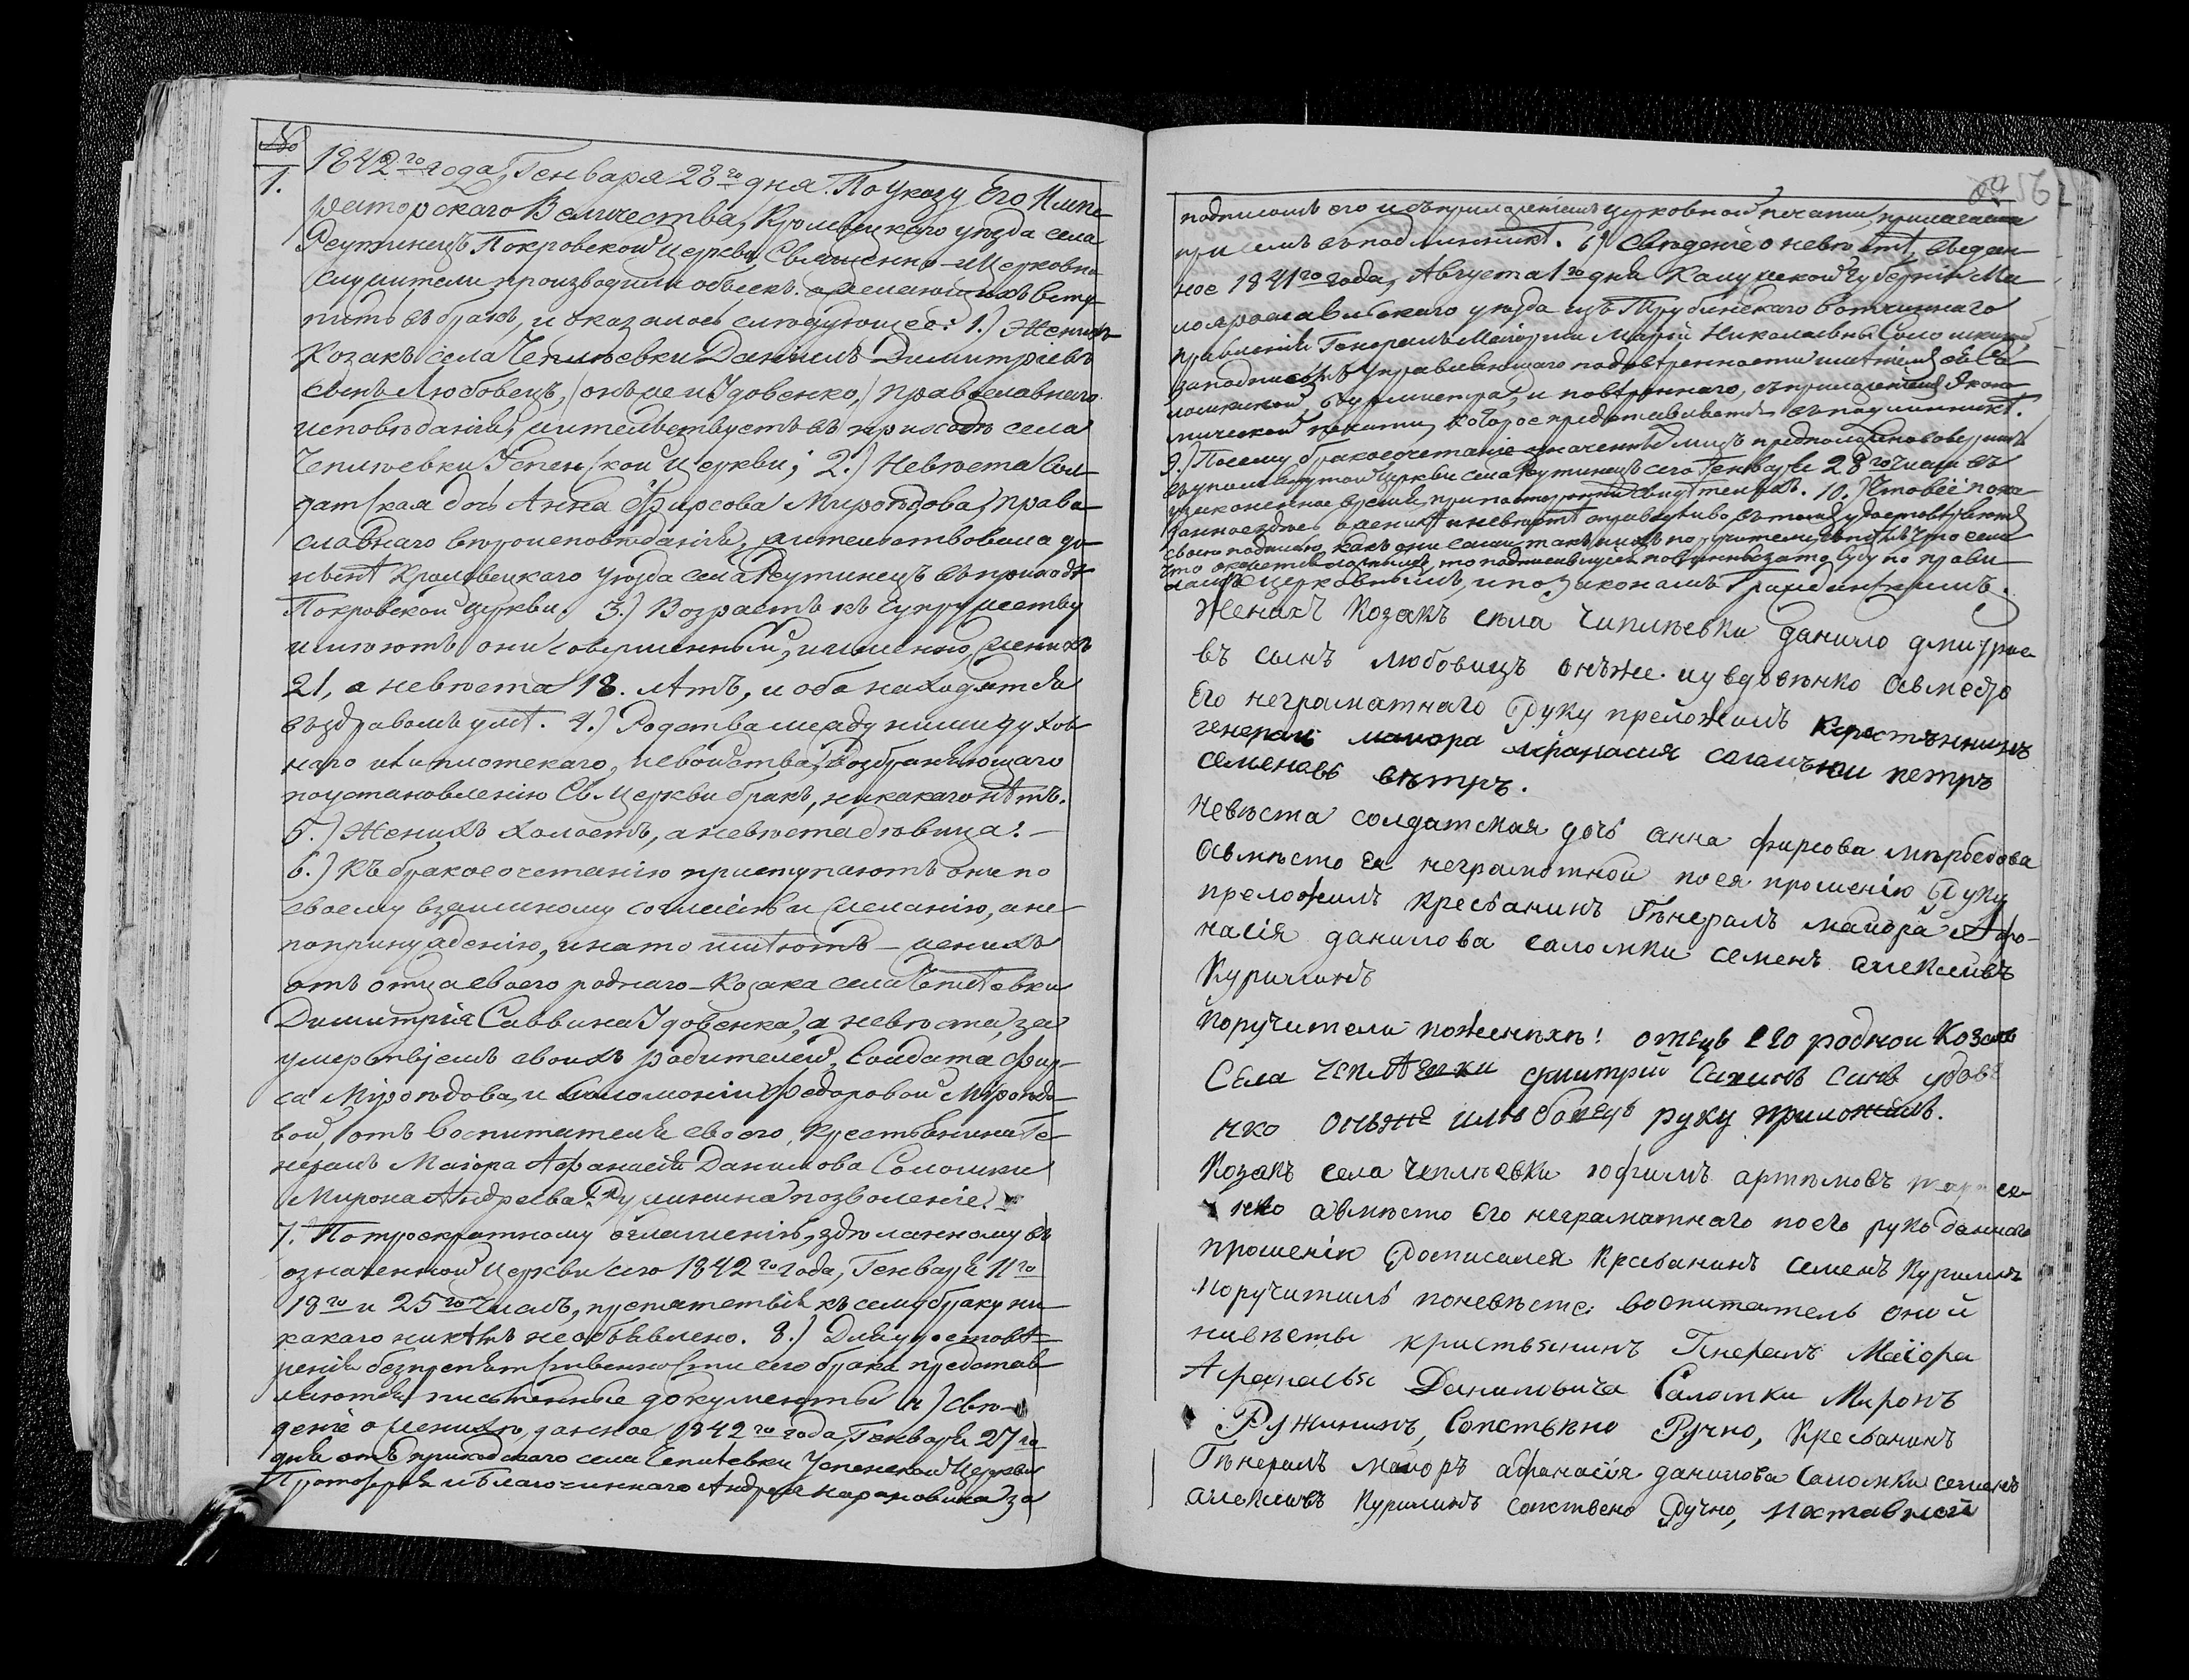 №
1.
1842го года, Генваря 28го дня. По Указу Его Импе-
раторскаго Величества, Кролевецкаго уезда села
Реутинецъ Покровской Церкви, Священно-и Церковно
служители, производили обыскъ о желающихъ всту-
пить въ бракъ, и оказалось слѣдующее: 1.) Женихъ
Козакъ села Чеплѣевки Даніилъ Димитріевъ
сынъ Любовецъ, (онъ же и Удовенко,) православнаго
исповѣданія, жительствуетъ въ приходѣ села
Чеплѣевки Успенской Церкви; 2.) Невѣста Сол-
датская дочь Анна Фирсова Мироѣдова, право-
славнаго вѣроисповѣданія, жительствовала до-
нынѣ Кролевецкаго уѣзда села Реутинецъ въ приходѣ
Покровской церкви. 3.) Возрастъ къ супружеству
имѣютъ они совершенный, именно, женихъ
21, а невѣста 18. лѣтъ, и оба находятся
въ здравомъ умѣ. 4.) Родства между ними духов-
наго или плотскаго, и свойства, возбраняющаго
по установленію Св. Церкви бракъ, никакаго нѣтъ.
5.) Женихъ холостъ, а невѣста дѣвица. –
6.) Къ бракосочетанію приступаютъ они по
своему взаимному согласію и желанію, а не
по принужденію, и на то имѣютъ – женихъ
отъ отца своего роднаго – Козака села Чеплѣевки
Димитрія Саввина Удовенка, а невѣста, за
умертвіемъ своихъ родителей, Солдата Фир-
са Міроѣдова, и Соломоніи Федоровой Міроѣдо-
вой, отъ воспитателя своего, крестьянина Ге-
нералъ Маіора Афанасія Данилова Соломки
Мирона Андреева Ружинина позволеніе. –
7. По троекратному оглашенію, здѣланному въ
означенной Церкви сего 1842го года, Генваря 11го
18го и 25го чиселъ, препятствія къ сему браку ни-
какаго никѣмъ не объявлено. 8.) Для удостовѣ-
ренія безпрепятственности сего брака представ-
ляются письменные документы: а) свѣ-
деніе о женихѣ, данное 1842го года, Генваря 27го
дня отъ приходскаго села Чеплѣевки Успенской Церкви
Протоіерея и благочиннаго Андрея за
56
подписомъ его и съ приложеніемъ церковной печати, прилагается
при семъ въ подлинникѣ. б) Сведеніе о невѣстѣ, выдан-
ное 1841го года, Августа 1го дня Калужской Губерніи Ма-
лоярославскаго уѣзда изъ Трубинскаго вотчиннаго
Правленія Генералъ Маіорши Маріи Николаевны Соломкиной,
за подписомъ управляющаго по довѣренности имѣніемъ ея Со-
ломкиной, бурмистра, и повѣреннаго, съ приложеніемъ Эконо-
мической печати, которое представляется въ подлинникѣ.
9.) Посему бракосочетаніе означенныхъ лицъ предположено совершить
въ упомянутой Церкви села Реутинецъ сего Генваря 28го числа въ
узаконенное время, при постороннихъ свидѣтеляхъ. 10.) Что всѣ пока-
занное здѣсь о женихѣ и невѣстѣ справедливо, въ томъ удостовѣряютъ
своею подписью, какъ они сами, такъ и ихъ поручители, съ тѣмъ, что если
что окажется ложнымъ, то подписавшіеся повинны за то суду по прави-
ламъ Церковнымъ, и по законамъ Гражданскимъ.
Женихъ Козакъ села Чиплѣевки данило дмитрие
въ сынъ любовицъ онъже иувдовѣнко авместо
Его неграматнаго Руку преложилъ Крестьянинъ
генерал маиора афанасия саломки петръ
семеновъ вѣтръ.
Невѣста солдатская дочь анна фирсова мѣроедова
авмѣсто ея неграмотной поея прошенію Руку
преложилъ кресьанинъ Гѣнералъ маиора Афо-
насія данилова саломки семенъ алексѣивъ
Куришинъ
Поручители поженихѣ: отецъ его родной Козакъ
Села чеплѣевки дмитрий Савинъ синъ удове
нко онъже илюбовецъ руку приложилъ.
Козакъ села чеплѣевки юфимъ артемовъ
нко авмѣсто Его неграматнаго поего рукоданнаго
прошенію Росписался Кресьанинъ семенъ Куришинъ
Поручитилъ поневѣсте: воспитатель оной
нивѣсты кристьянинъ Гѣнералъ Маіора
Афанасья Даниловича Саломки Миронъ
Ружининъ, Сопствѣно Ручно, Кресьанинъ
Гѣнералъ маиоръ афанасія данилова саломки семенъ
алексѣивъ Куришинъ Сопствено Ручно,